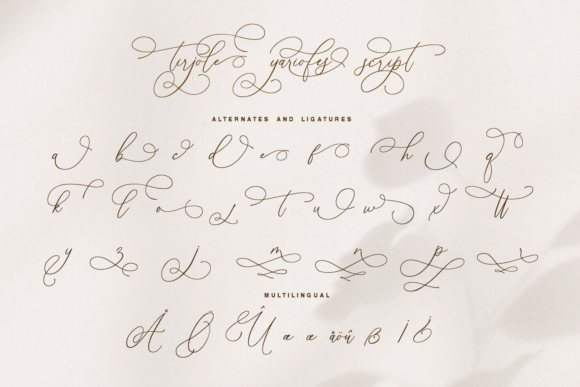 tirjole yariofes script
ALTERNATES AND LIGATURES
a b c d e f h q
k l o s t u w x tt
y z j m n p i
MULTILINGUAL
Å Ö Û æ œ åöû ß